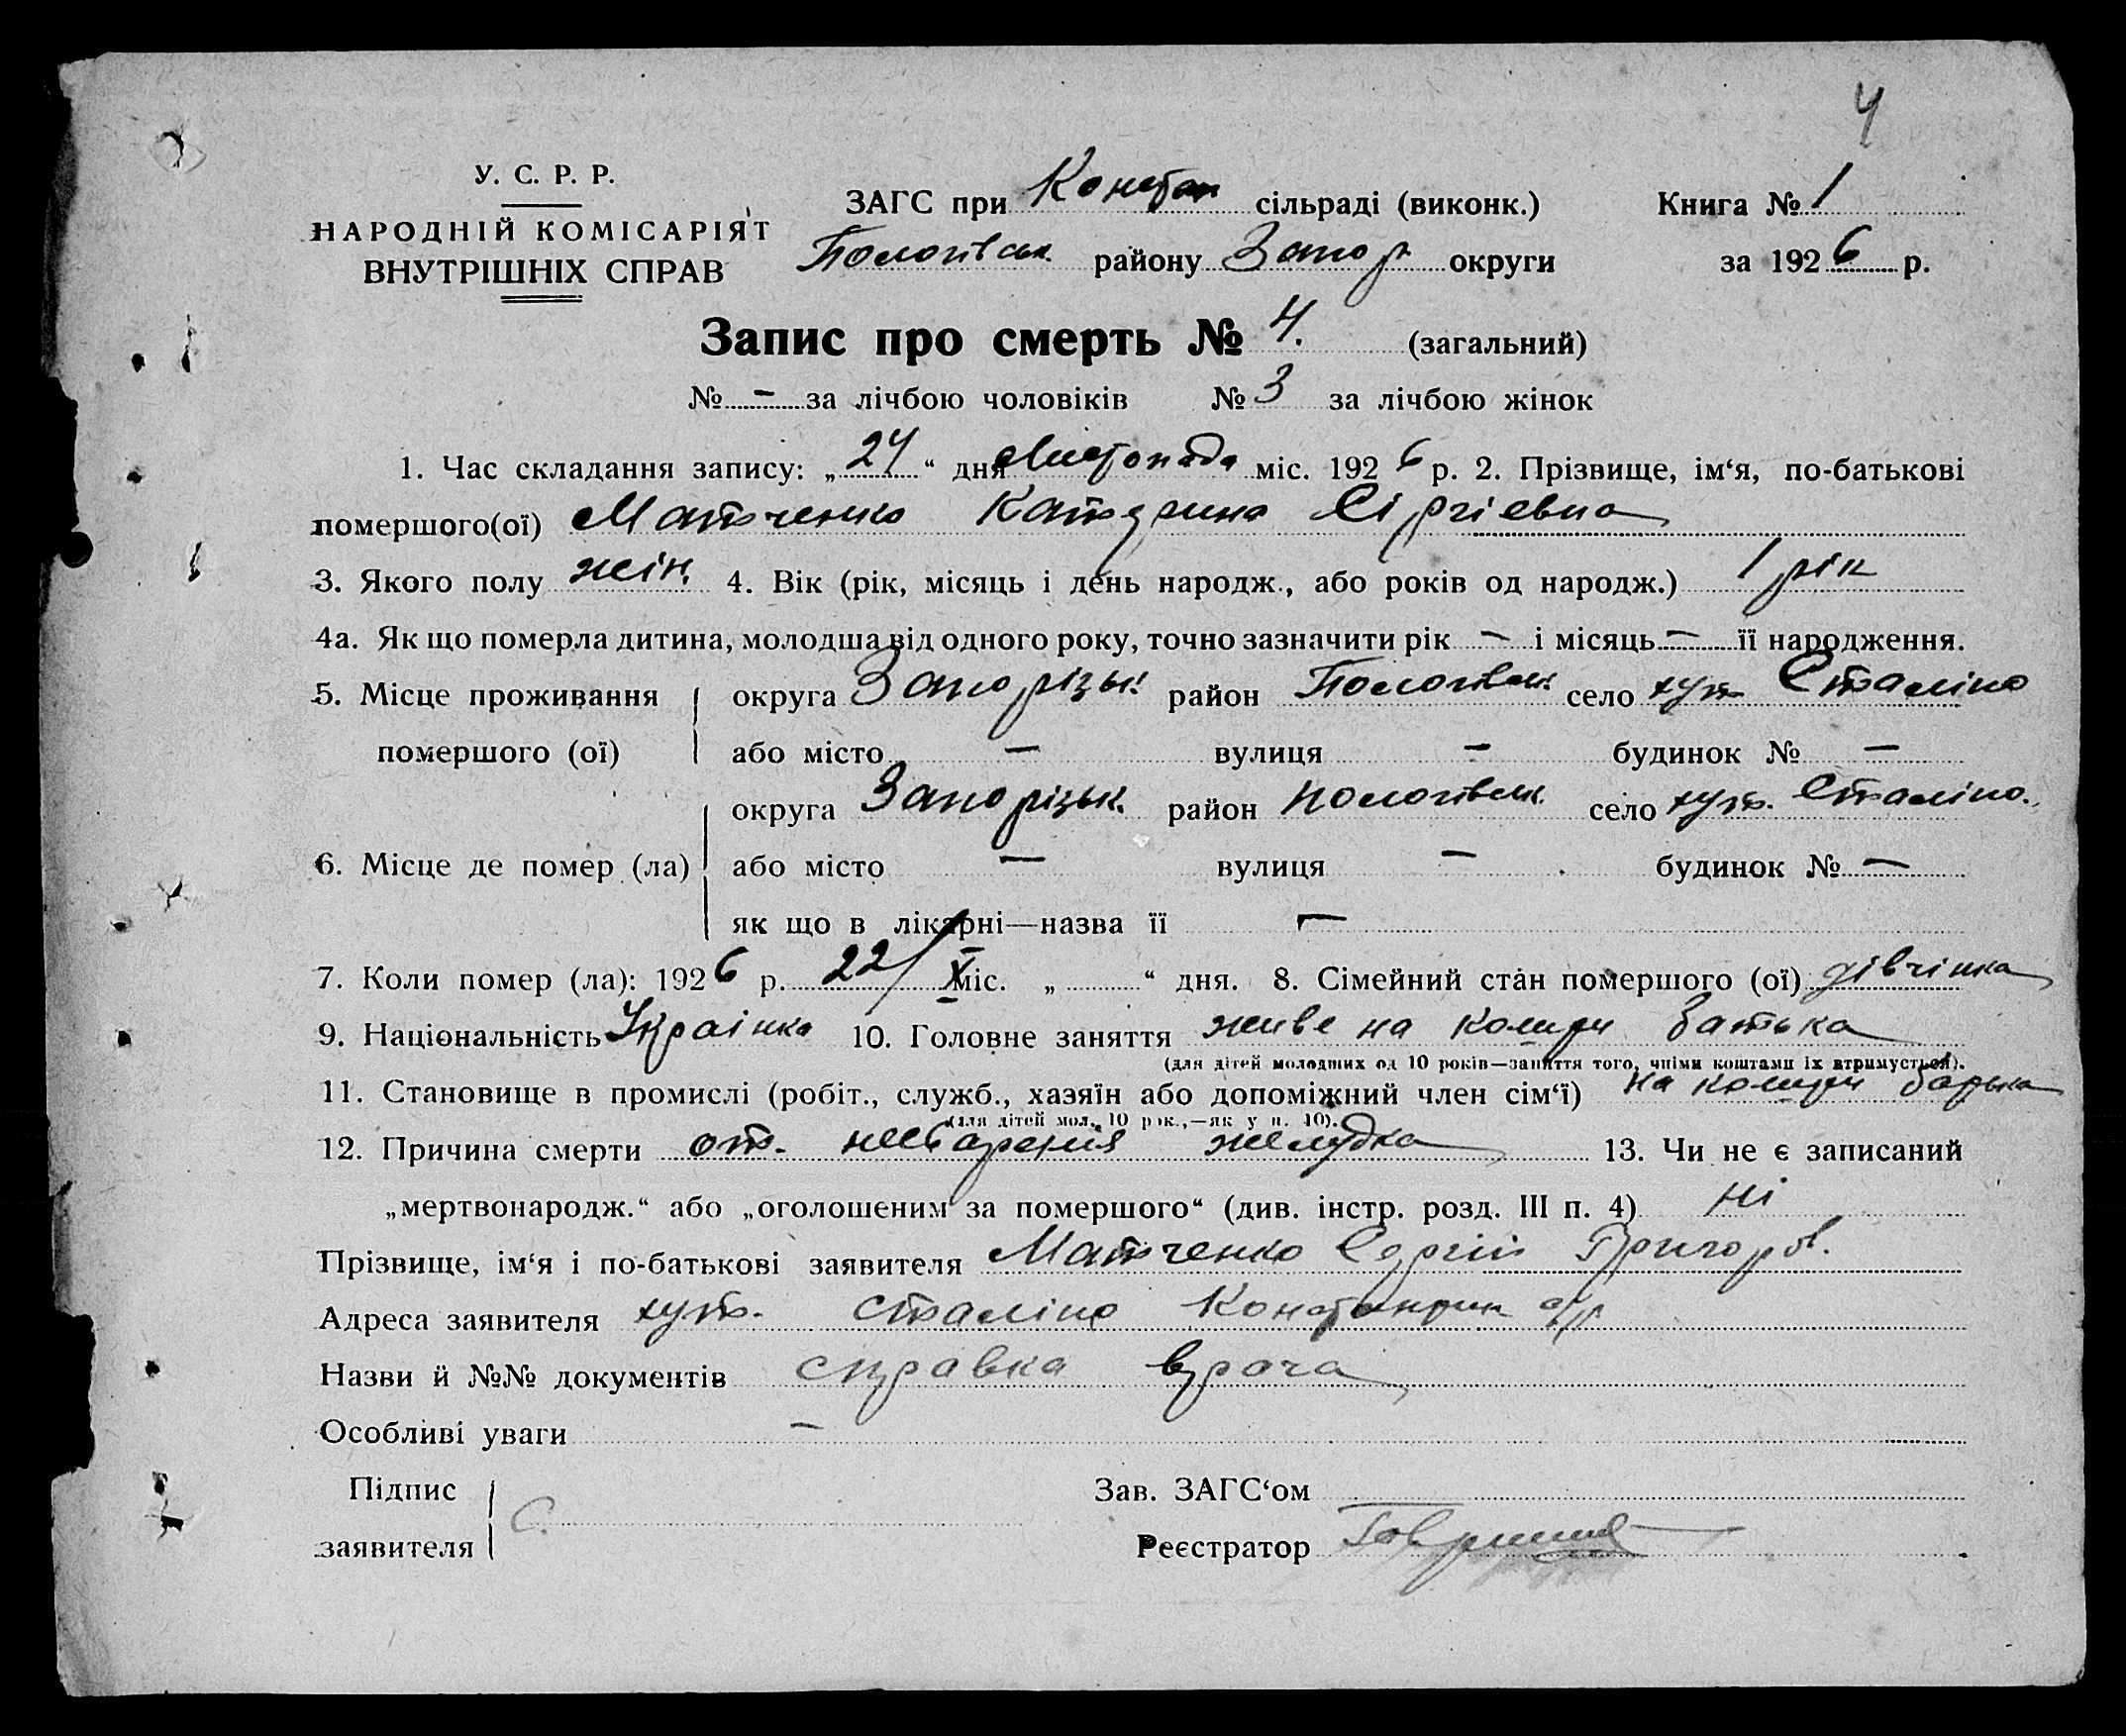 4
У. С. Р. Р.
НАРОДНІЙ КОМІСАРІЯТ
ВНУТРІШНІХ СПРАВ
ЗАГС при Констан сільраді (виконк.)
Пологівськ. району Запор округи
Книга № 1
за 1926 р.
Запис про смерть № 4. (загальний)
№ — за лічбою чоловіків № 3 за лічбою жінок
1. Час складання запису: „24“ дня Листопада міс. 1926 р. 2. Прізвище, ім‘я, по-батькові
помершого(ої) Матченко Катерина Сергіевна
3. Якого полу жін. 4. Вік (рік, місяць і день народж., або років од народж.) 1 рік
4а. Як що померла дитина, молодша від одного року, точно зазначити рік — і місяць — її народження.
5. Місце проживання округа Запорізьк. район Пологівськ. село хут. Сталіно
помершого (ої) або місто — вулиця — будинок № —
округа Запорізьк. район Пологівськ. село хут. Сталіно.
6. Місце де помер (ла) або місто — вулиця — будинок № —
як що в лікарні—назва її —
7. Коли помер (ла): 1926 р. 22/X міс. „ “ дня. 8. Сімейний стан помершого (ої) дівчінка
9. Національність Украінка 10. Головне заняття живе на кошти батька
(для дітей молодших од 10 років—заняття того, чиїми коштами їх втримується).
11. Становище в промислі (робіт., служб., хазяїн або допоміжний член сім‘ї) на кошти батька
(для дітей мол. 10 рок.,—як у п. 10).
12. Причина смерти от. несварения желудка 13. Чи не є записаний
„мертвонародж.“ або „оголошеним за помершого“ (див. інстр. розд. III п. 4) ні
Прізвище, ім‘я і по-батькові заявителя Матченко Сергій Григоров.
Адреса заявителя хут. Сталіно с/р
Назви й №№ документів справка врача
Особливі уваги —
Підпис
заявителя С.
Зав. ЗАГС‘ом
Реєстратор